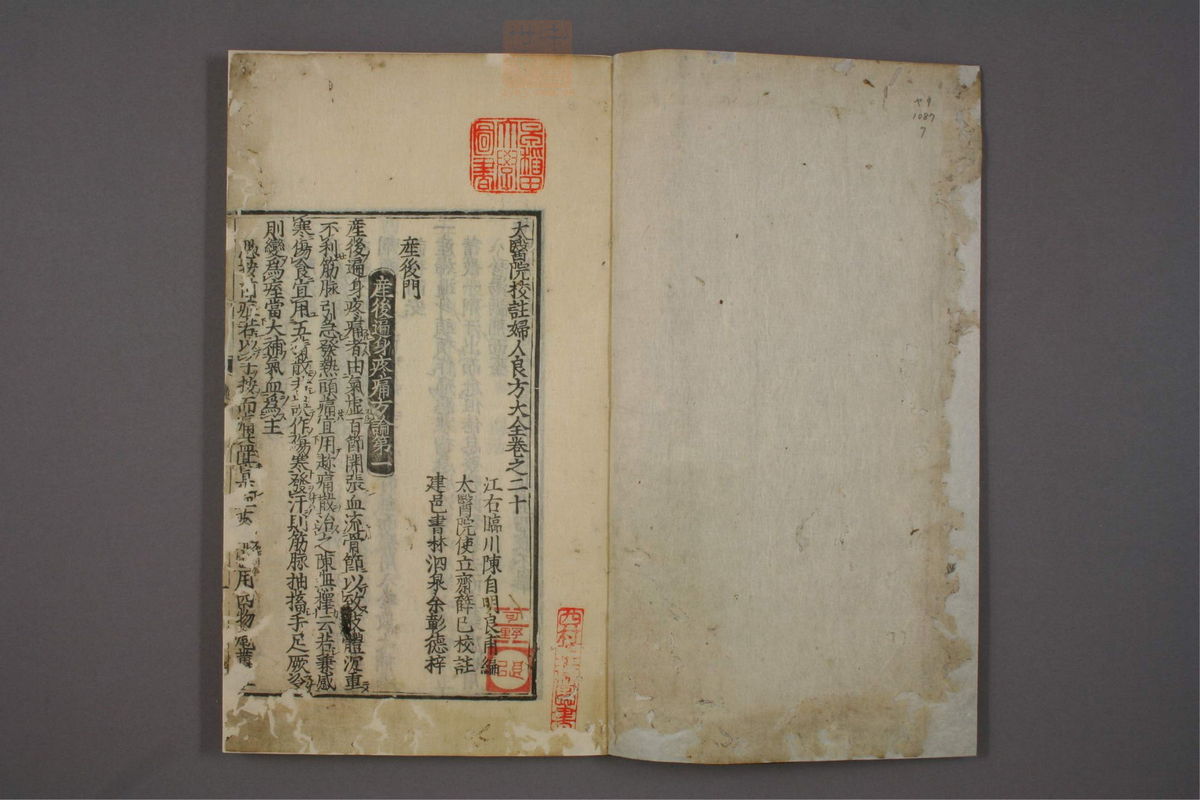 太醫院校註婦人良方大全卷之二十
江右臨川陳自明良甫編
太醫院使立齋薛己校註
建邑書林泗泉余彰德梓
産後門
産後遍身疼痛方論第一
産後遍身疼痛者由氣虛百節開張血流骨節以致肢體沉重
不利筋脉引急發熱頭痛宜用趁痛散治之陳無擇云若兼感
寒傷食宜用五積散若誤作傷寒發汗則筋脉抽搐手足厥冷
則變爲痓當大補氣血爲主
若以手按而痛
用四物
早稻田大學圖書
ヤ9
1087
7